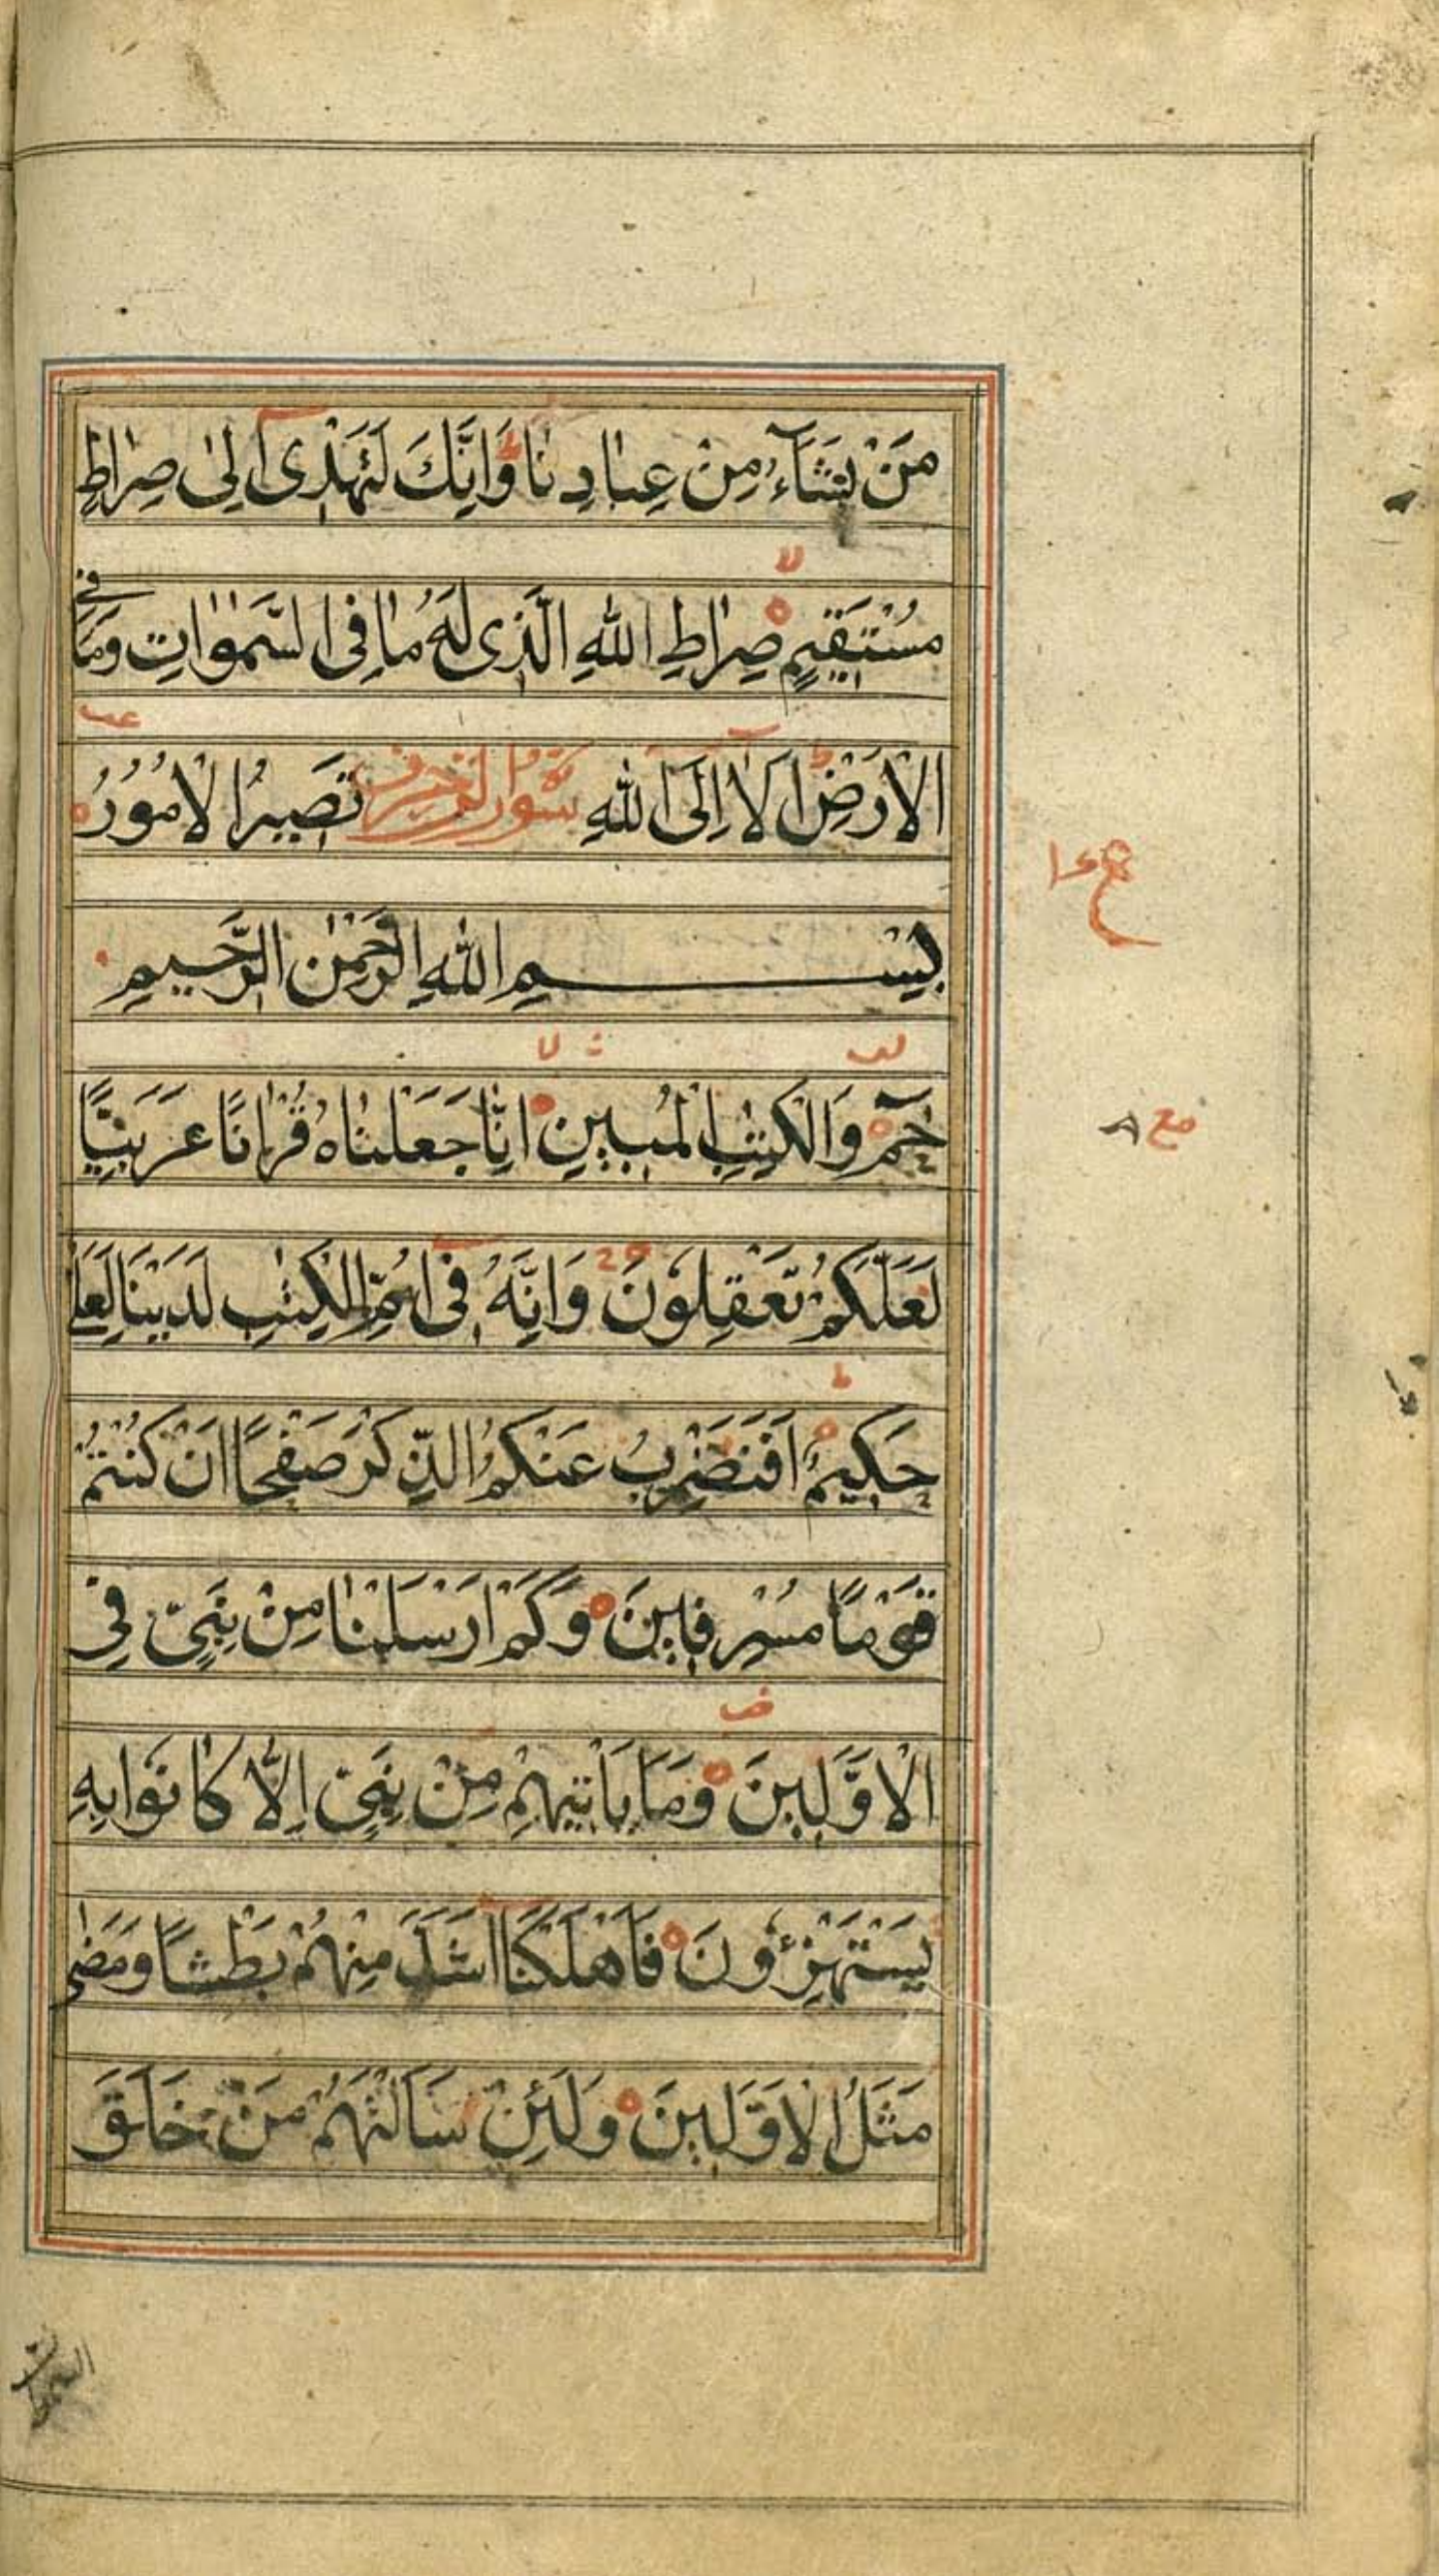 مَنْ يَشَآءُ مِنْ عِبَادِنَا وَاِنَّكَ لَتَهْدِىٓ اِلٰى صِرَاطٍ
مُسْتَقِيمٍ صِرَاطِ اللّٰهِ الَّذِى لَهُ مَا فِى السَّمٰوَاتِ وَمَا فِى
الْاَرْضِ اَلَآ اِلَى اللّٰهِ تَصِيرُ الْاُمُوْرُ
سورة الزخرف
بِسْمِ اللّٰهِ الرَّحْمٰنِ الرَّحِيمِ
حٰمٓ وَالْكِتٰبِ الْمُبِينِ اِنَّا جَعَلْنَاهُ قُرْاٰنًا عَرَبِيًّا
لَعَلَّكُمْ تَعْقِلُوْنَ وَاِنَّهُ فِىٓ اُمِّ الْكِتٰبِ لَدَيْنَا لَعَلِىٌّ
حَكِيمٌ اَفَنَضْرِبُ عَنْكُمُ الذِّكْرَ صَفْحًا اَنْ كُنْتُمْ
قَوْمًا مُسْرِفِينَ وَكَمْ اَرْسَلْنَا مِنْ نَبِىٍّ فِى
الْاَوَّلِينَ وَمَا يَاْتِيهِمْ مِنْ نَبِىٍّ اِلَّا كَانُوا بِهِ
يَسْتَهْزِءُوْنَ فَاَهْلَكْنَآ اَشَدَّ مِنْهُمْ بَطْشًا وَمَضٰى
مَثَلُ الْاَوَّلِينَ وَلَئِنْ سَاَلْتَهُمْ مَنْ خَلَقَ
السموات
مع ٨